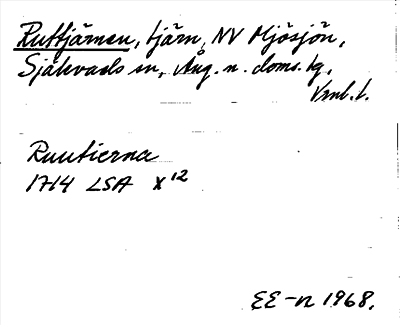 Ruttjärnen, tjärn, NV Mjösjön,
Själevads sn, Ång. n. doms. tg,
Vnl. l.
Ruutierna
1714 LSA X¹²
EE-n 1968.